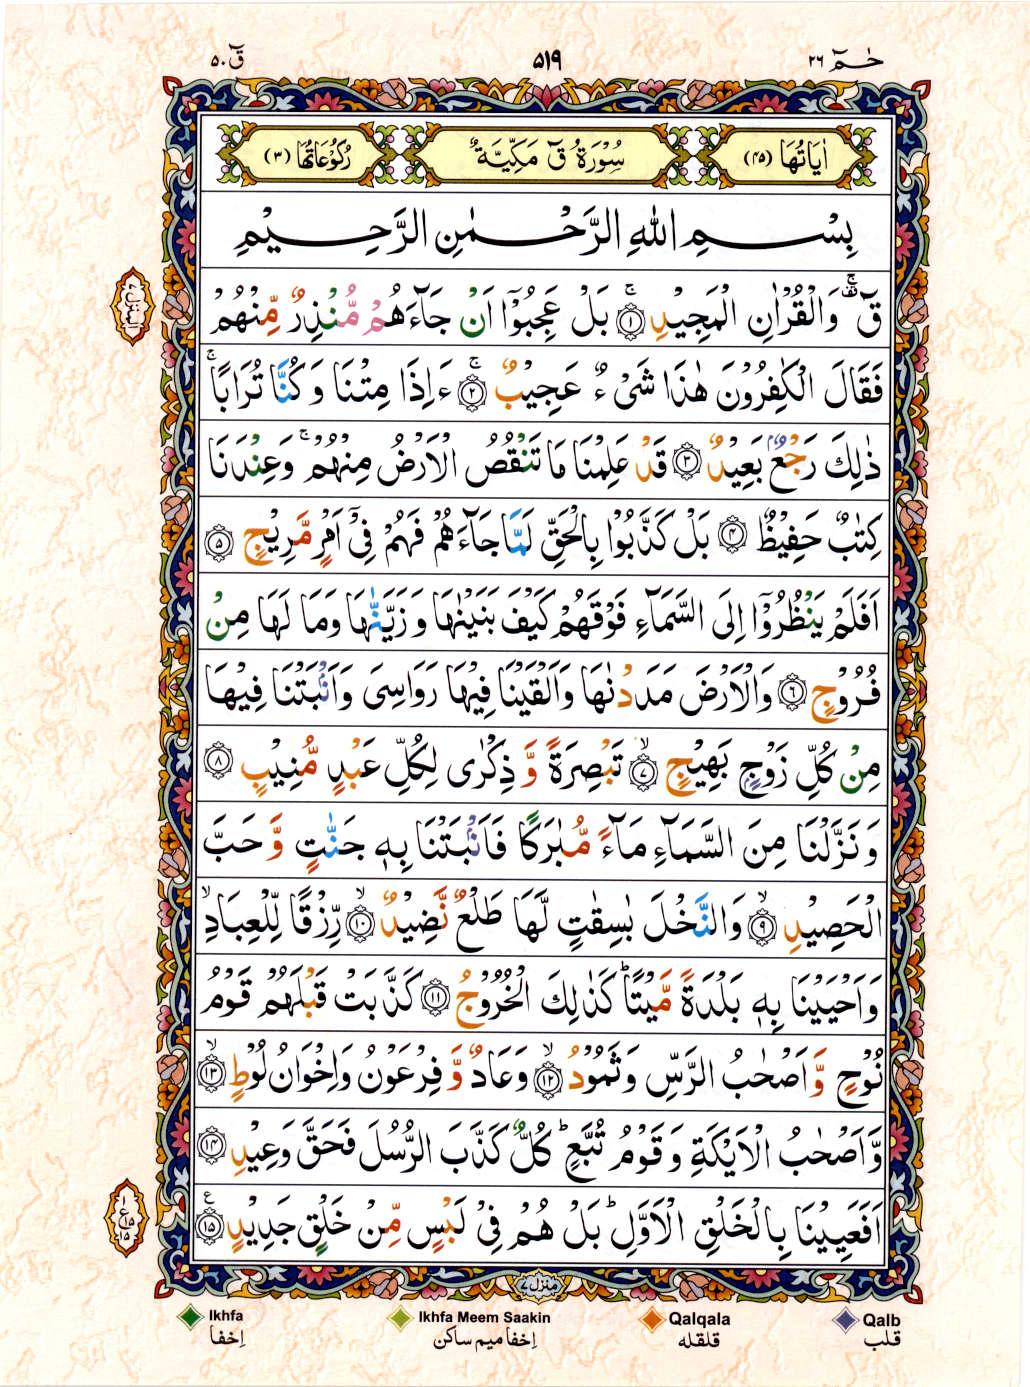 حٰمٓ ٢٦
٥١٩
قٓ ٥٠
اٰيَاتُهَا (٤٥)
سُوْرَةُ قٓ مَكِّيَّةٌ
رُكُوْعَاتُهَا (٣)
بِسْمِ اللهِ الرَّحْمٰنِ الرَّحِيْمِ
قٓ ۚ وَالْقُرْاٰنِ الْمَجِيْدِ ۚ ﴿١﴾ بَلْ عَجِبُوْٓا اَنْ جَآءَهُمْ مُّنْذِرٌ مِّنْهُمْ
فَقَالَ الْكٰفِرُوْنَ هٰذَا شَىْءٌ عَجِيْبٌ ۚ ﴿٢﴾ ءَاِذَا مِتْنَا وَكُنَّا تُرَابًا ۚ
ذٰلِكَ رَجْعٌۢ بَعِيْدٌ ﴿٣﴾ قَدْ عَلِمْنَا مَا تَنْقُصُ الْاَرْضُ مِنْهُمْ ۚ وَعِنْدَنَا
كِتٰبٌ حَفِيْظٌ ﴿٤﴾ بَلْ كَذَّبُوْا بِالْحَقِّ لَمَّا جَآءَهُمْ فَهُمْ فِىْٓ اَمْرٍ مَّرِيْجٍ ﴿٥﴾
اَفَلَمْ يَنْظُرُوْٓا اِلَى السَّمَآءِ فَوْقَهُمْ كَيْفَ بَنَيْنٰهَا وَزَيَّنّٰهَا وَمَا لَهَا مِنْ
فُرُوْجٍ ﴿٦﴾ وَالْاَرْضَ مَدَدْنٰهَا وَاَلْقَيْنَا فِيْهَا رَوَاسِىَ وَاَنْۢبَتْنَا فِيْهَا
مِنْ كُلِّ زَوْجٍ بَهِيْجٍ ۙ ﴿٧﴾ تَبْصِرَةً وَّذِكْرٰى لِكُلِّ عَبْدٍ مُّنِيْبٍ ﴿٨﴾
وَنَزَّلْنَا مِنَ السَّمَآءِ مَآءً مُّبٰرَكًا فَاَنْۢبَتْنَا بِهٖ جَنّٰتٍ وَّحَبَّ
الْحَصِيْدِ ۙ ﴿٩﴾ وَالنَّخْلَ بٰسِقٰتٍ لَّهَا طَلْعٌ نَّضِيْدٌ ۙ ﴿١٠﴾ رِّزْقًا لِّلْعِبَادِ ۙ
وَاَحْيَيْنَا بِهٖ بَلْدَةً مَّيْتًا ؕ كَذٰلِكَ الْخُرُوْجُ ﴿١١﴾ كَذَّبَتْ قَبْلَهُمْ قَوْمُ
نُوْحٍ وَّاَصْحٰبُ الرَّسِّ وَثَمُوْدُ ۙ ﴿١٢﴾ وَعَادٌ وَّفِرْعَوْنُ وَاِخْوَانُ لُوْطٍ ۙ ﴿١٣﴾
وَّاَصْحٰبُ الْاَيْكَةِ وَقَوْمُ تُبَّعٍ ؕ كُلٌّ كَذَّبَ الرُّسُلَ فَحَقَّ وَعِيْدِ ﴿١٤﴾
اَفَعَيِيْنَا بِالْخَلْقِ الْاَوَّلِ ؕ بَلْ هُمْ فِىْ لَبْسٍ مِّنْ خَلْقٍ جَدِيْدٍ ﴿١٥﴾
المنزل ٧
١
ع
١٥
١٥
منزل ٧
Ikhfa
اِخفا
Ikhfa Meem Saakin
اِخفا میم ساکن
Qalqala
قلقله
Qalb
قلب